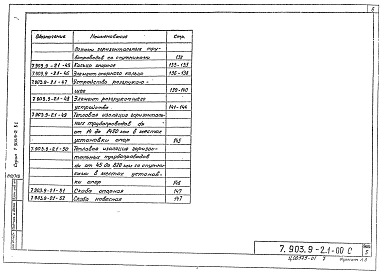 6
Обозначение Наименование Стр.
горизонтальных тру-
бопроводов со скорлупами 132
7.903.9-2.1-45 Кольцо опорное 133-135
7.903.9-2.1-46 Элемент опорного кольца 136-138
7.903.9-2.1-47 Устройство разгружаю-
щее 139-140
7.903.9-2.1-48 Элемент разгрузочного
устройства 141-144
7.903.9-2.1-49 Тепловая изоляция горизонталь-
ных трубопроводов dн
от 14 до 1420 мм в местах
установки опор 145
7.903.9-2.1-50 Тепловая изоляция горизон-
тальных трубопроводов
dн от 45 до 820 мм со
в местах установ-
ки опор 146
7.903.9-2.1-51 Скоба опорная 147
7.903.9-2.1-52 Скоба навесная 147
7.903.9-2.1-00 С
Лист
5
Формат А3